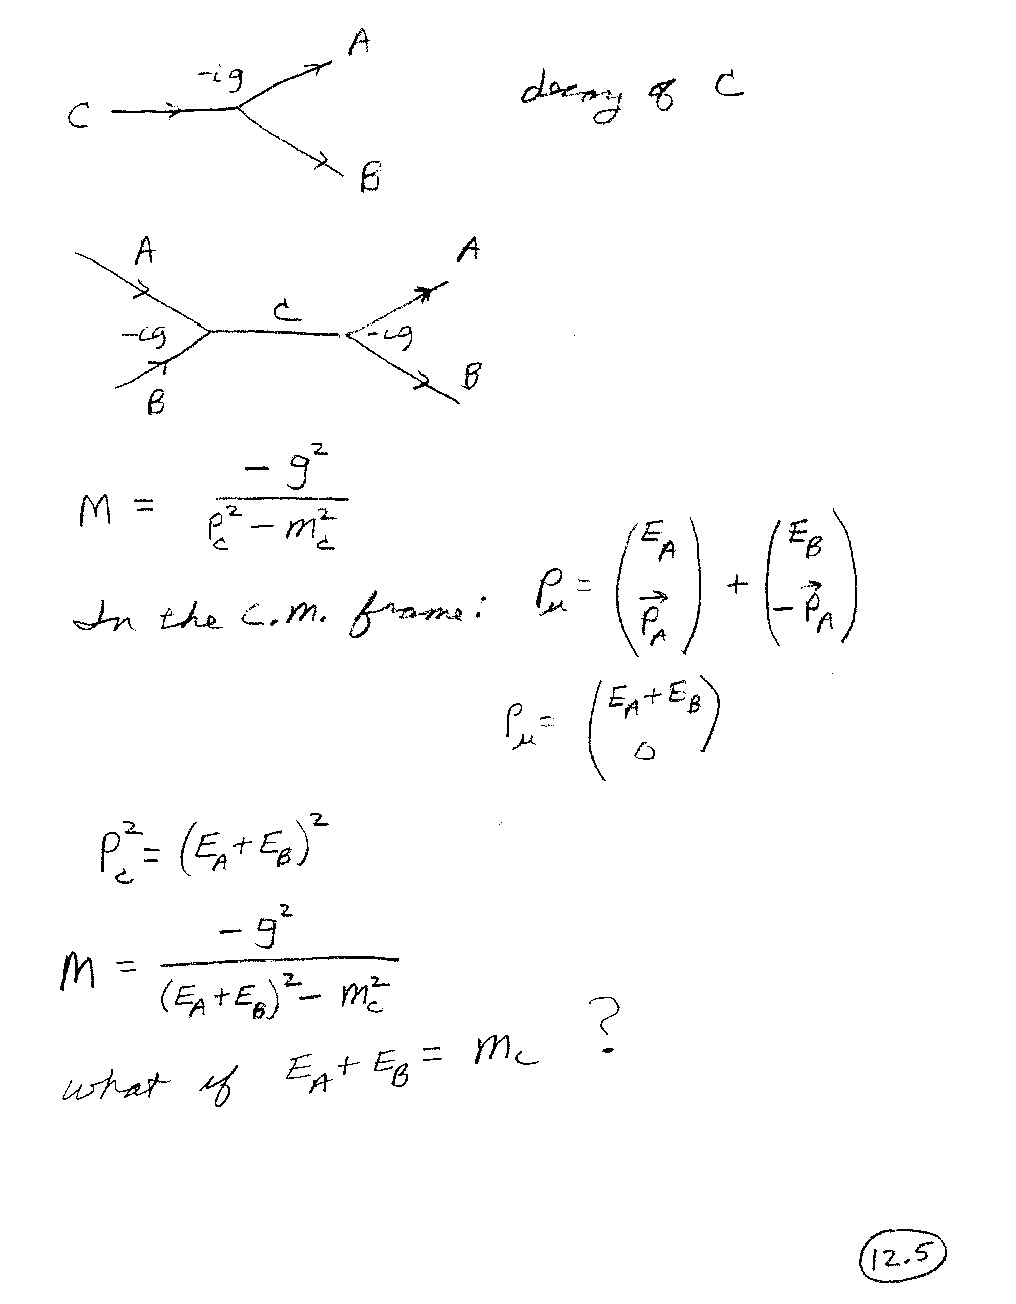 C -ig A B decay of C
A A
-ig C -ig
B B
M = -g² / (P_c² - m_c²)
In the c.m. frame: P_μ = (E_A, P⃗_A) + (E_B, -P⃗_A)
P_μ = (E_A + E_B, 0)
P_c² = (E_A + E_B)²
M = -g² / ((E_A + E_B)² - m_c²)
what if E_A + E_B = m_c ?
12.5